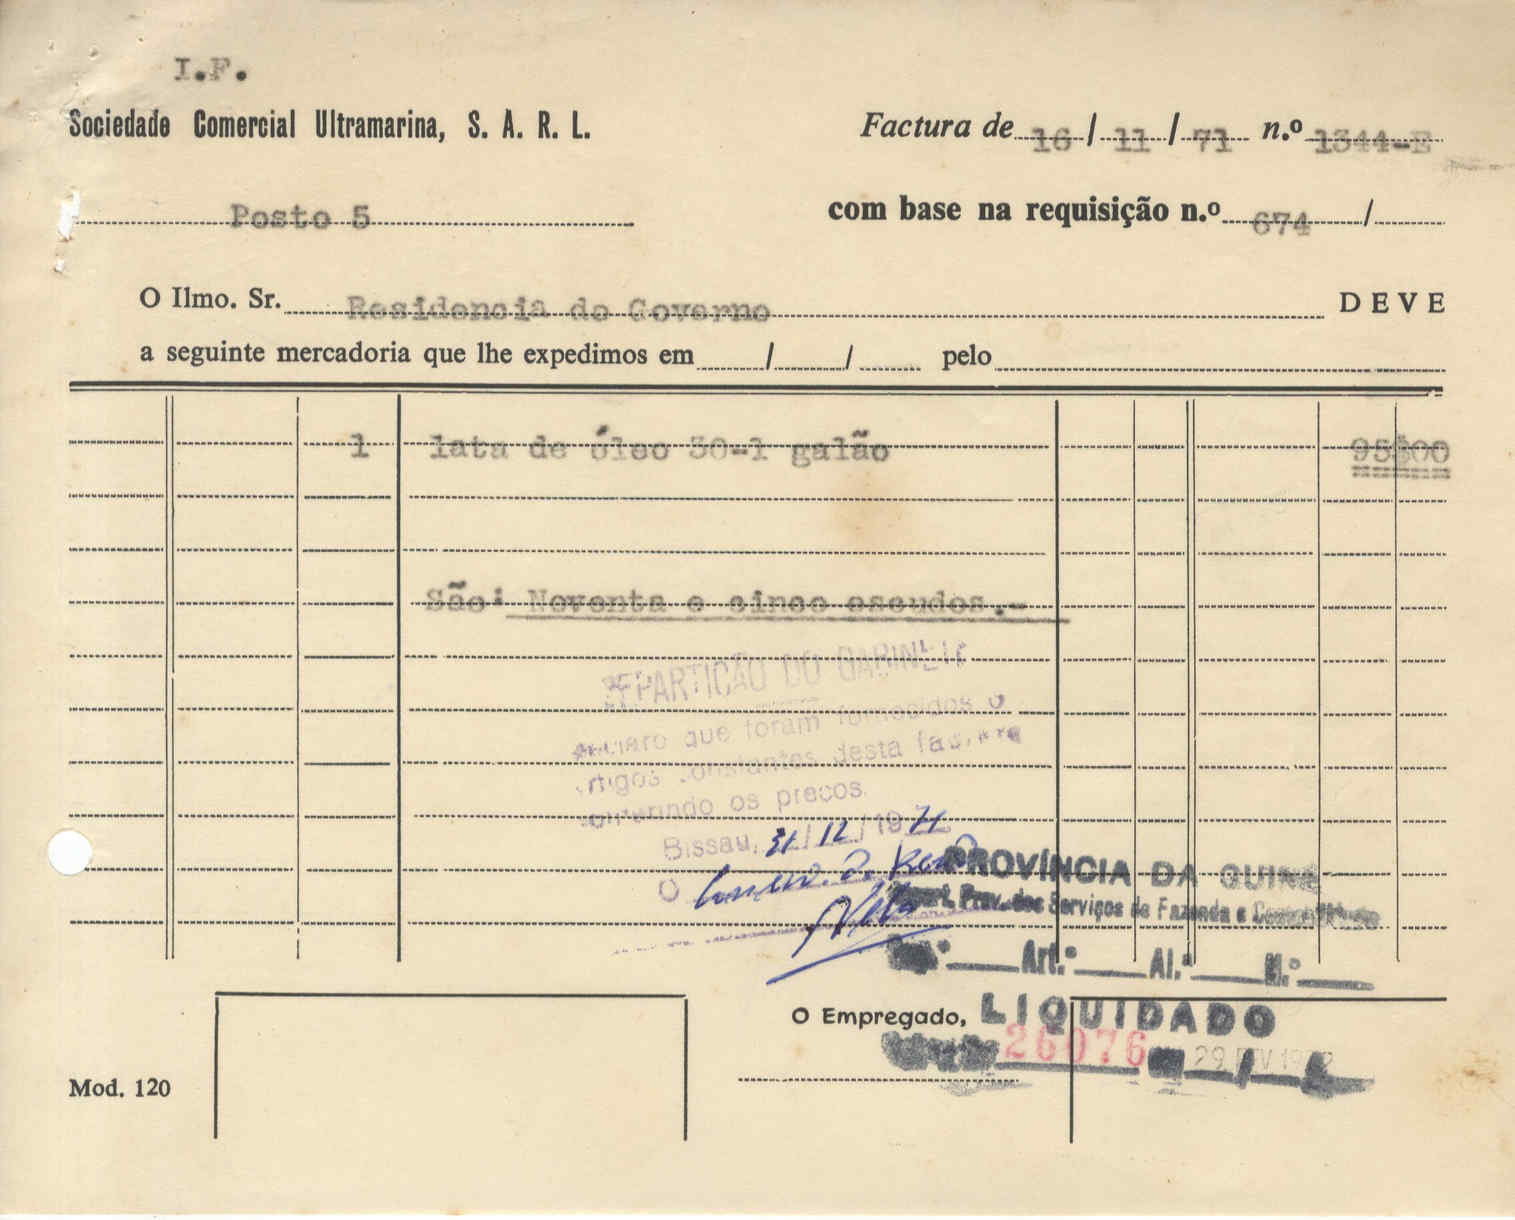 I.F.
Sociedade Comercial Ultramarina, S. A. R. L.
Factura de 16 / 11 / 71 n.º 1344-E
Posto 5
com base na requisição n.º 674 /
O Ilmo. Sr. Residencia do Governo DEVE
a seguinte mercadoria que lhe expedimos em / / pelo
1 lata de óleo 30-1 galão 95$00
São: Noventa e cinco escudos.-
REPARTIÇÃO DO GABINETE
Declaro que foram fornecidos o
artigos constantes desta factura
conferindo os preços.
Bissau, 31 / 12 / 1971
O
PROVÍNCIA DA GUINÉ
Repart. Prov. dos Serviços de Fazenda e Contabilidade
Cap.º Art.º Al.ª N.º
O Empregado,
LIQUIDADO
26076 29 FEV 1972
Mod. 120